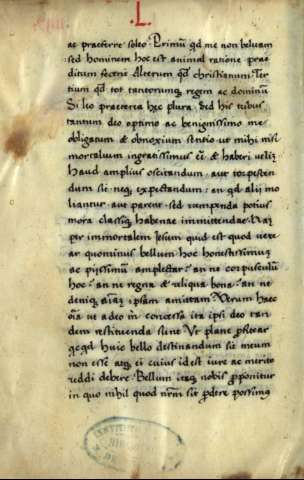 .L.
ac praeferre soleo. Primū qd me non beluam
sed hominem hoc est animal ratione prae
ditum fecit: Alterum qd christianum: Ter
tium qd tot tantorumq; regem ac dominū
Si leo praeterea hec plura. Sed his tribus
tantum deo optimo ac benignissimo me
obligatum & obnoxium sentio ut nihi nisi
mortalium ingratissimus eē & haberi velim
Haud amplius oscitandum. aut torpescen
dum sit neq; expectandum: an qd alij mo
liantur. aut parent. sed rumpenda potius
mora classiq; habenae immittendae. Nā
per immortalem Iesum quid est quod vere
ar quominus bellum hoc honestissimum
ac pijssimū amplectar. an ne corpusculū
hoc. an ne regna & reliqua bona. an ne
deniq; aīaz ipsam amittam. Verum haec
oīa ut a deo mī concessa ita ipsi deo tan
dem restituenda sunt. Ut plane profitear
qcqd huic bello destinandum sit meum
non esse atq; ei cuius id est iure ac merito
reddi debere. Bellum itaq; nobis proponitur
in quo nihil quod nrm sit perdere possimus